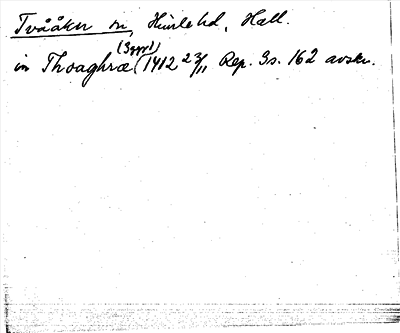 Tvååker sn, Himle hd, Hall.
in Thoaghræ (1412 23/11 Rep. 3s. 162 avskr.